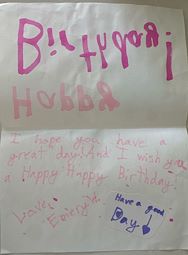 Happy
Birthday!
I hope you have a
great day! And I wish you
a Happy Happy Birthday!
Love,
Have a good
Day